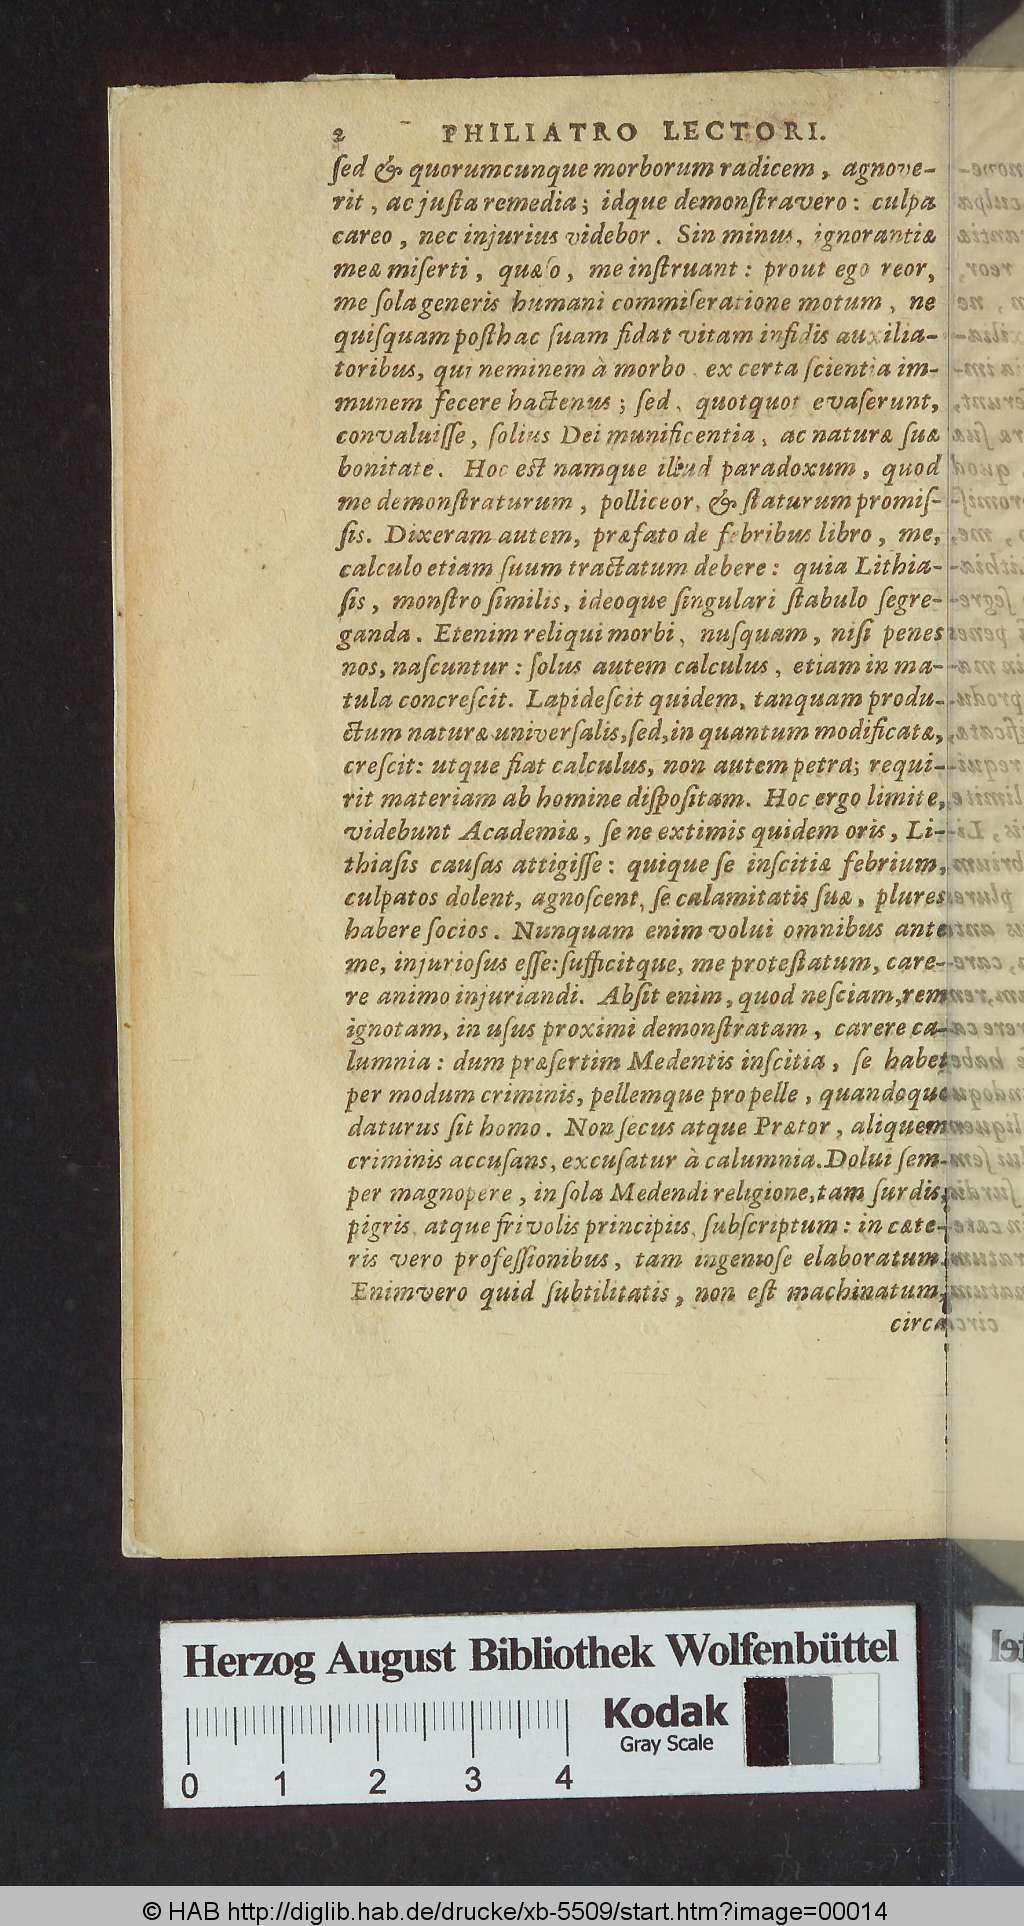 2 PHILIATRO LECTORI.
ſed & quorumcunque morborum radicem, agnove-
rit, ac juſta remedia; idque demonſtravero: culpa
careo, nec injurius videbor. Sin minus, ignorantiæ
meæ miſerti, quæſo, me inſtruant: prout ego reor,
me ſola generis humani commiſeratione motum, ne
quiſquam poſthac ſuam fidat vitam infidis auxilia-
toribus, qui neminem à morbo ex certa ſcientia im-
munem fecere hactenus; ſed, quotquot evaſerunt,
convaluiſſe, ſolius Dei munificentia, ac naturæ ſuæ
bonitate. Hoc eſt namque illud paradoxum, quod
me demonſtraturum, polliceor, & ſtaturum promiſ-
ſis. Dixeram autem, præfato de febribus libro, me,
calculo etiam ſuum tractatum debere: quia Lithia-
ſis, monſtro ſimilis, ideoque ſingulari ſtabulo ſegre-
ganda. Etenim reliqui morbi, nuſquam, niſi penes
nos, naſcuntur: ſolus autem calculus, etiam in ma-
tula concreſcit. Lapideſcit quidem, tanquam produ-
ctum naturæ univerſalis, ſed, in quantum modificatæ,
creſcit: utque fiat calculus, non autem petra; requi-
rit materiam ab homine diſpoſitam. Hoc ergo limite,
videbunt Academiæ, ſe ne extimis quidem oris, Li-
thiaſis cauſas attigiſſe: quique ſe inſcitiæ febrium,
culpatos dolent, agnoſcent, ſe calamitatis ſuæ, plures
habere ſocios. Nunquam enim volui omnibus ante
me, injurioſus eſſe: ſufficitque, me proteſtatum, care-
re animo injuriandi. Abſit enim, quod neſciam, rem
ignotam, in uſus proximi demonſtratam, carere ca-
lumnia: dum præſertim Medentis inſcitia, ſe habet
per modum criminis, pellemque pro pelle, quandoque
daturus ſit homo. Non ſecus atque Prætor, aliquem
criminis accuſans, excuſatur à calumnia. Dolui ſem-
per magnopere, in ſola Medendi religione, tam ſurdis,
pigris, atque frivolis principiis, ſubſcriptum: in cæte-
ris vero profeſſionibus, tam ingenioſe elaboratum.
Enimvero quid ſubtilitatis, non eſt machinatum,
circa
Herzog August Bibliothek Wolfenbüttel
Kodak
Gray Scale
0 1 2 3 4
© HAB http://diglib.hab.de/drucke/xb-5509/start.htm?image=00014